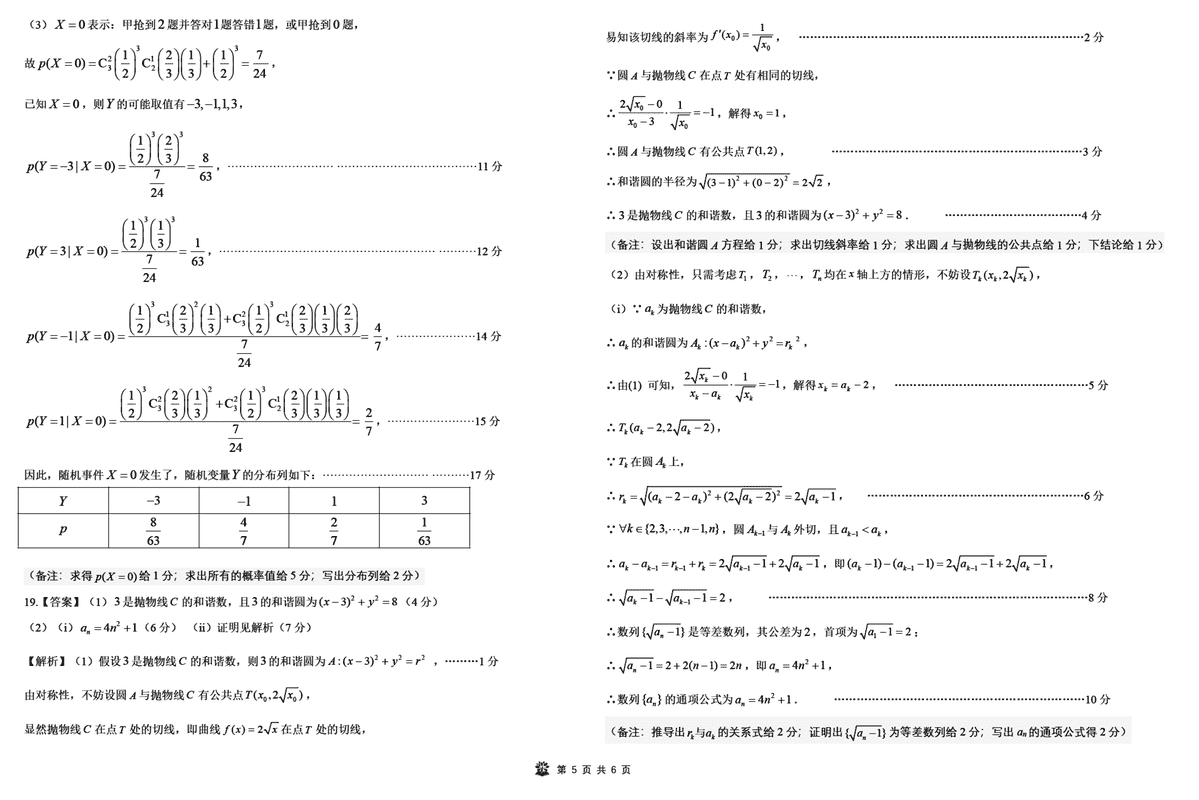 （3）X = 0 表示：甲抢到 2 题并答对 1 题答错 1 题，或甲抢到 0 题，
故 p(X = 0) = C₃²(1/2)³C₂¹(2/3)(1/3)+(1/2)³ = 7/24，
已知 X = 0，则 Y 的可能取值有 −3, −1,1,3，
p(Y = −3 | X = 0) = ((1/2)³(2/3)³)/(7/24) = 8/63，⋯⋯⋯⋯⋯⋯⋯⋯⋯⋯11 分
p(Y = 3 | X = 0) = ((1/2)³(1/3)³)/(7/24) = 1/63，⋯⋯⋯⋯⋯⋯⋯⋯⋯⋯12 分
p(Y = −1 | X = 0) = ((1/2)³C₃¹(2/3)²(1/3)+C₃²(1/2)³C₂¹(2/3)(1/3)(2/3))/(7/24) = 4/7，⋯⋯⋯⋯⋯⋯14 分
p(Y = 1 | X = 0) = ((1/2)³C₃²(2/3)(1/3)²+C₃²(1/2)³C₂¹(2/3)(1/3)(1/3))/(7/24) = 2/7，⋯⋯⋯⋯⋯⋯15 分
因此，随机事件 X = 0 发生了，随机变量 Y 的分布列如下：⋯⋯⋯⋯⋯⋯⋯⋯⋯17 分
Y −3 −1 1 3
p 8/63 4/7 2/7 1/63
（备注：求得 p(X = 0) 给 1 分；求出所有的概率值给 5 分；写出分布列给 2 分）
19.【答案】（1）3 是抛物线 C 的和谐数，且 3 的和谐圆为 (x − 3)² + y² = 8（4 分）
（2）（i）aₙ = 4n² + 1（6 分） （ii）证明见解析（7 分）
【解析】（1）假设 3 是抛物线 C 的和谐数，则 3 的和谐圆为 A : (x − 3)² + y² = r² ，⋯⋯⋯1 分
由对称性，不妨设圆 A 与抛物线 C 有公共点 T(x₀,2√x₀)，
显然抛物线 C 在点 T 处的切线，即曲线 f (x) = 2√x 在点 T 处的切线，
易知该切线的斜率为 f ′(x₀) = 1/√x₀， ⋯⋯⋯⋯⋯⋯⋯⋯⋯⋯2 分
∵圆 A 与抛物线 C 在点 T 处有相同的切线，
∴ (2√x₀ − 0)/(x₀ − 3) · 1/√x₀ = −1，解得 x₀ = 1，
∴圆 A 与抛物线 C 有公共点 T(1,2)， ⋯⋯⋯⋯⋯⋯⋯⋯⋯⋯3 分
∴和谐圆的半径为 √((3 − 1)² + (0 − 2)²) = 2√2，
∴ 3 是抛物线 C 的和谐数，且 3 的和谐圆为 (x − 3)² + y² = 8． ⋯⋯⋯⋯⋯⋯4 分
（备注：设出和谐圆 A 方程给 1 分；求出切线斜率给 1 分；求出圆 A 与抛物线的公共点给 1 分；下结论给 1 分）
（2）由对称性，只需考虑 T₁，T₂，⋯，Tₙ 均在 x 轴上方的情形，不妨设 Tₖ(xₖ,2√xₖ)，
（i）∵ aₖ 为抛物线 C 的和谐数，
∴ aₖ 的和谐圆为 Aₖ : (x − aₖ)² + y² = rₖ²，
∴由(1) 可知，(2√xₖ − 0)/(xₖ − aₖ) · 1/√xₖ = −1，解得 xₖ = aₖ − 2， ⋯⋯⋯⋯⋯⋯⋯⋯5 分
∴ Tₖ(aₖ − 2,2√(aₖ − 2))，
∵ Tₖ 在圆 Aₖ 上，
∴ rₖ = √((aₖ − 2 − aₖ)² + (2√(aₖ − 2))²) = 2√(aₖ − 1)， ⋯⋯⋯⋯⋯⋯⋯⋯6 分
∵ ∀k ∈{2,3,⋯,n − 1,n}，圆 Aₖ₋₁ 与 Aₖ 外切，且 aₖ₋₁ < aₖ，
∴ aₖ − aₖ₋₁ = rₖ₋₁ + rₖ = 2√(aₖ₋₁ − 1) + 2√(aₖ − 1)，即 (aₖ − 1) − (aₖ₋₁ − 1) = 2√(aₖ₋₁ − 1) + 2√(aₖ − 1)，
∴ √(aₖ − 1) − √(aₖ₋₁ − 1) = 2， ⋯⋯⋯⋯⋯⋯⋯⋯⋯⋯8 分
∴数列 {√(aₙ − 1)} 是等差数列，其公差为 2，首项为 √(a₁ − 1) = 2；
∴ √(aₙ − 1) = 2 + 2(n − 1) = 2n，即 aₙ = 4n² + 1，
∴数列 {aₙ} 的通项公式为 aₙ = 4n² + 1． ⋯⋯⋯⋯⋯⋯⋯⋯⋯⋯10 分
（备注：推导出 rₖ 与 aₖ 的关系式给 2 分；证明出 {√(aₙ − 1)} 为等差数列给 2 分；写出 aₙ 的通项公式得 2 分）
第 5 页 共 6 页